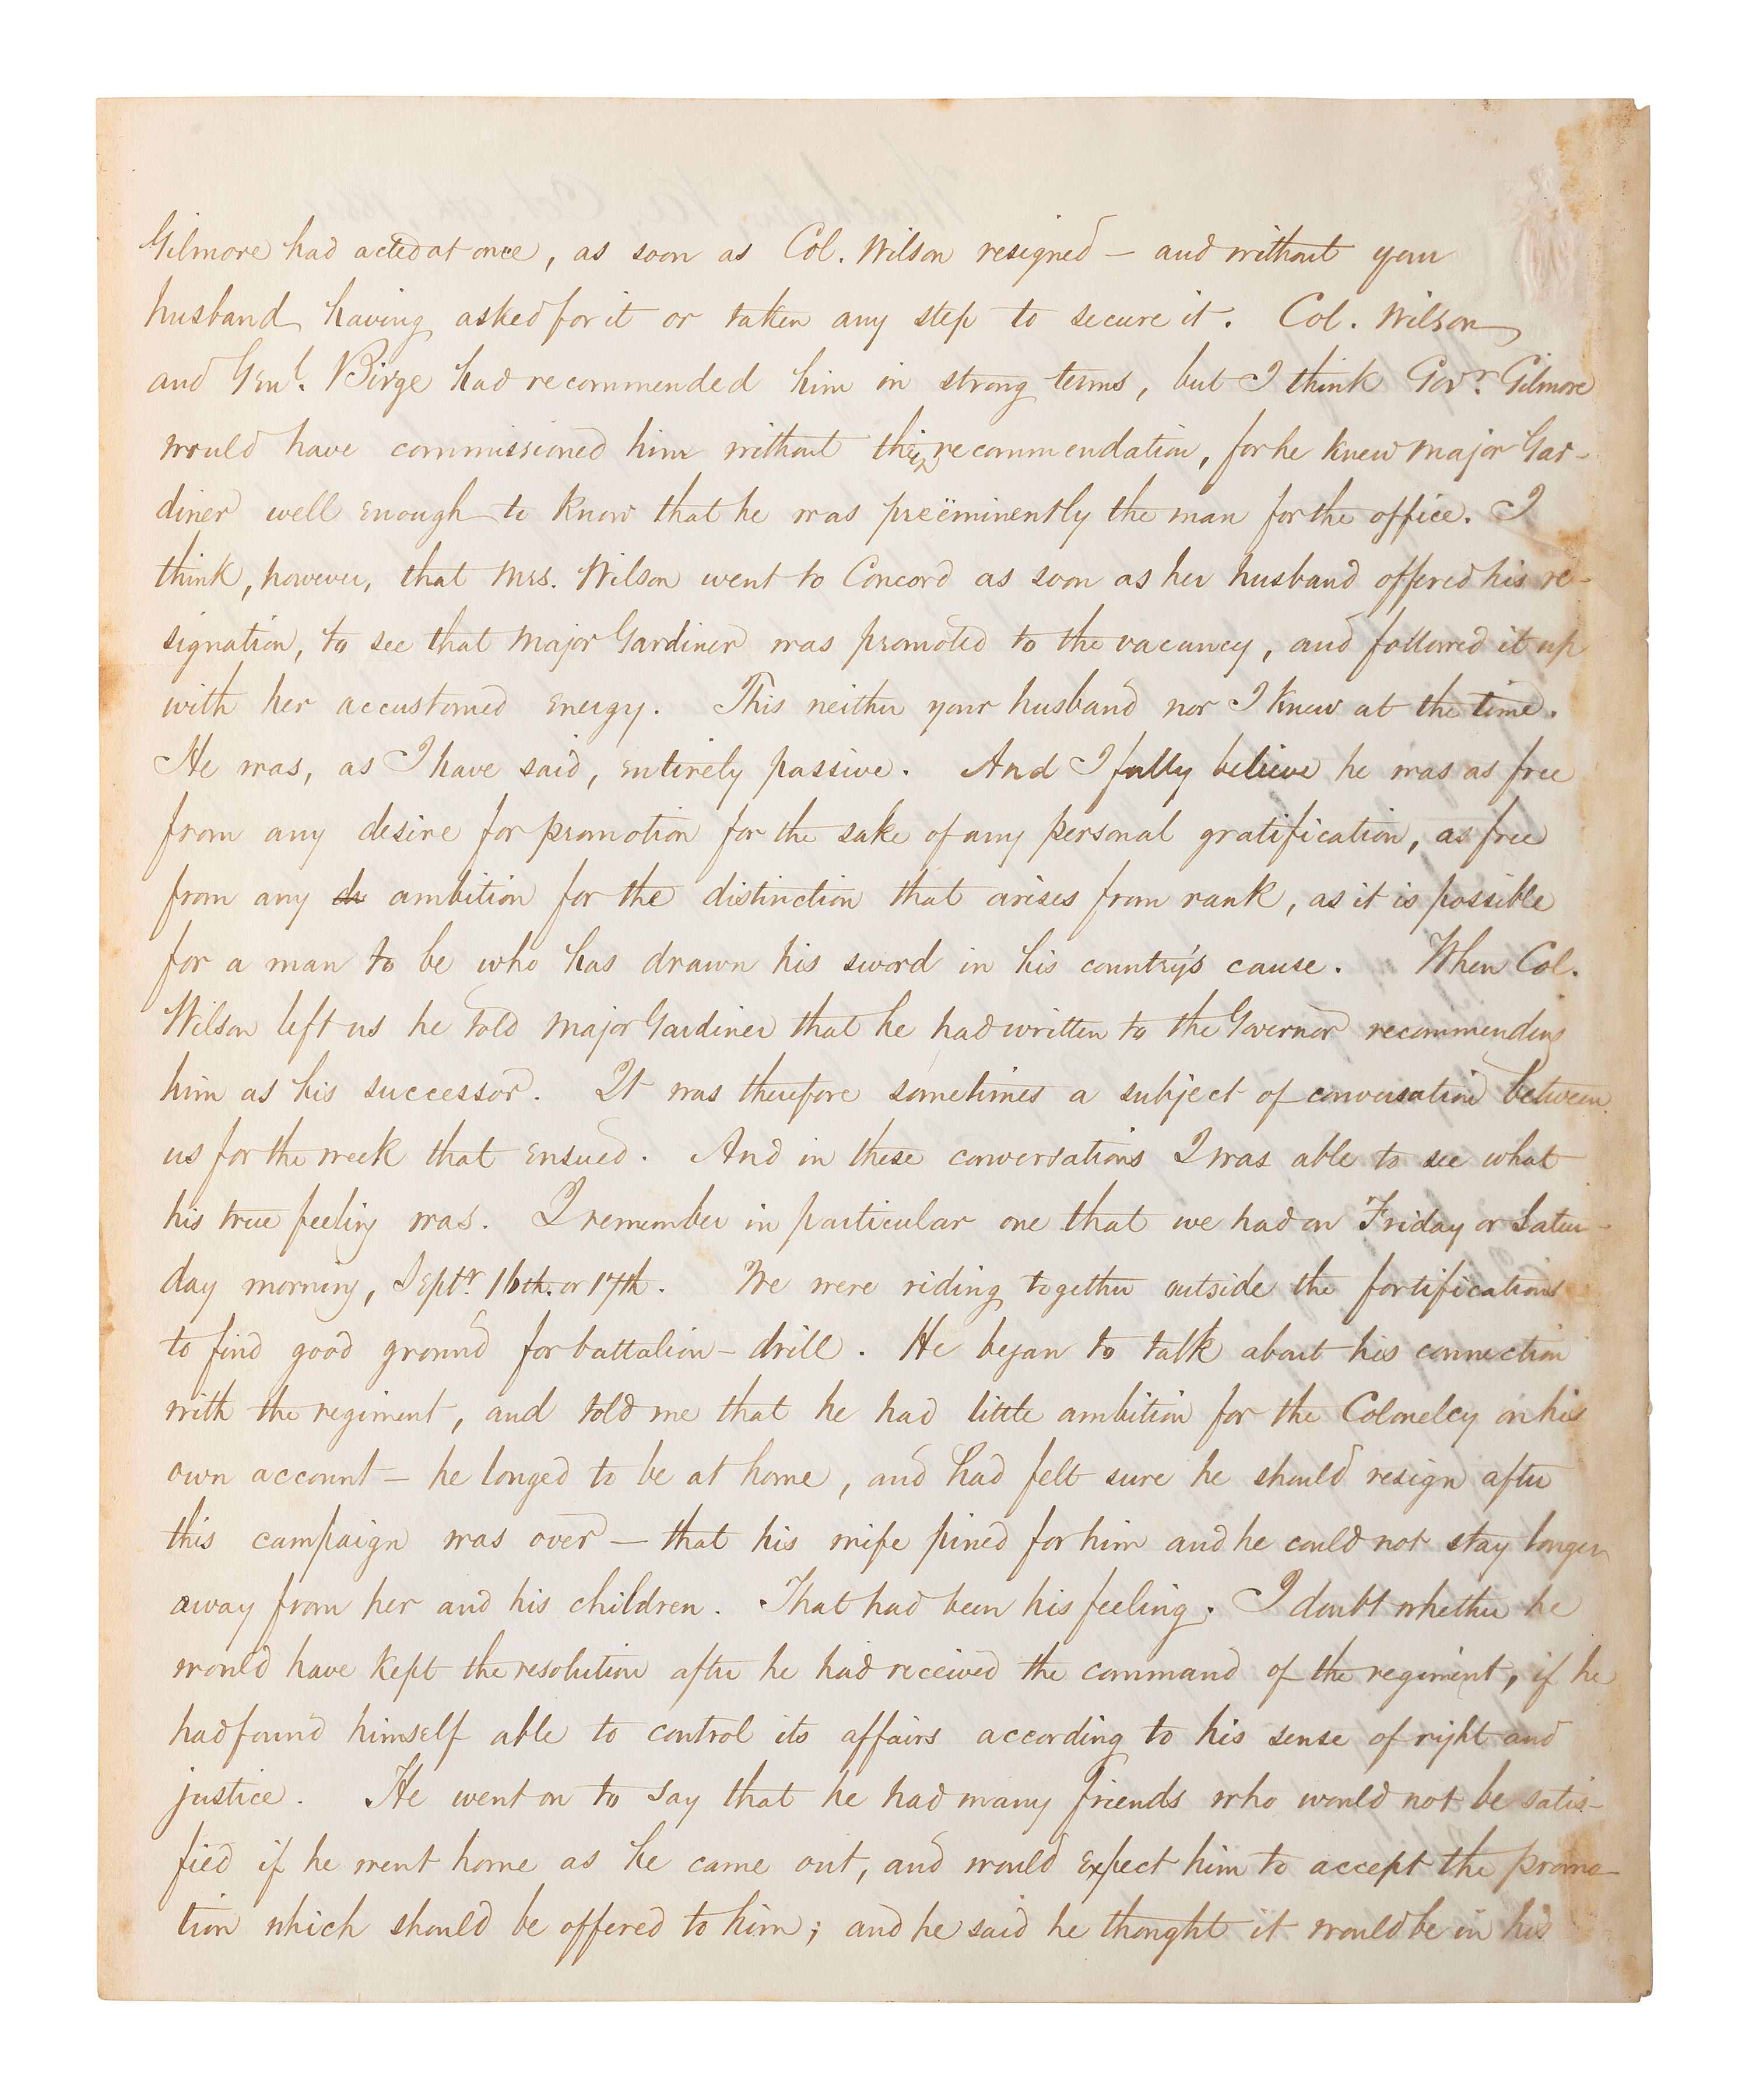 Gilmore had acted at once, as soon as Col. Wilson resigned — and without your
husband having asked for it or taken any step to secure it. Col. Wilson
and Genl. Birge had recommended him in strong terms, but I think Govr. Gilmore
would have commissioned him without their recommendation, for he knew Major Gar-
diner well enough to know that he was preëminently the man for the office. I
think, however, that Mrs. Wilson went to Concord as soon as her husband offered his re-
signation, to see that Major Gardiner was promoted to the vacancy, and followed it up
with her accustomed energy. This neither your husband nor I knew at the time.
He was, as I have said, entirely passive. And I fully believe he was as free
from any desire for promotion for the sake of any personal gratification, as free
from any ambition for the distinction that arises from rank, as it is possible
for a man to be who has drawn his sword in his country's cause. When Col.
Wilson left us he told Major Gardiner that he had written to the Governor recommending
him as his successor. It was therefore sometimes a subject of conversation between
us for the week that ensued. And in these conversations I was able to see what
his true feeling was. I remember in particular one that we had on Friday or Satur-
day morning, Septr. 16th. or 17th. We were riding together outside the fortifications
to find good ground for battalion-drill. He began to talk about his connection
with the regiment, and told me that he had little ambition for the Colonelcy on his
own account — he longed to be at home, and had felt sure he should resign after
this campaign was over — that his wife pined for him and he could not stay longer
away from her and his children. That had been his feeling. I doubt whether he
would have kept the resolution after he had received the command of the regiment, if he
had found himself able to control its affairs according to his sense of right and
justice. He went on to say that he had many friends who would not be satis-
fied if he went home as he came out, and would expect him to accept the promo-
tion which should be offered to him; and he said he thought it would be in his